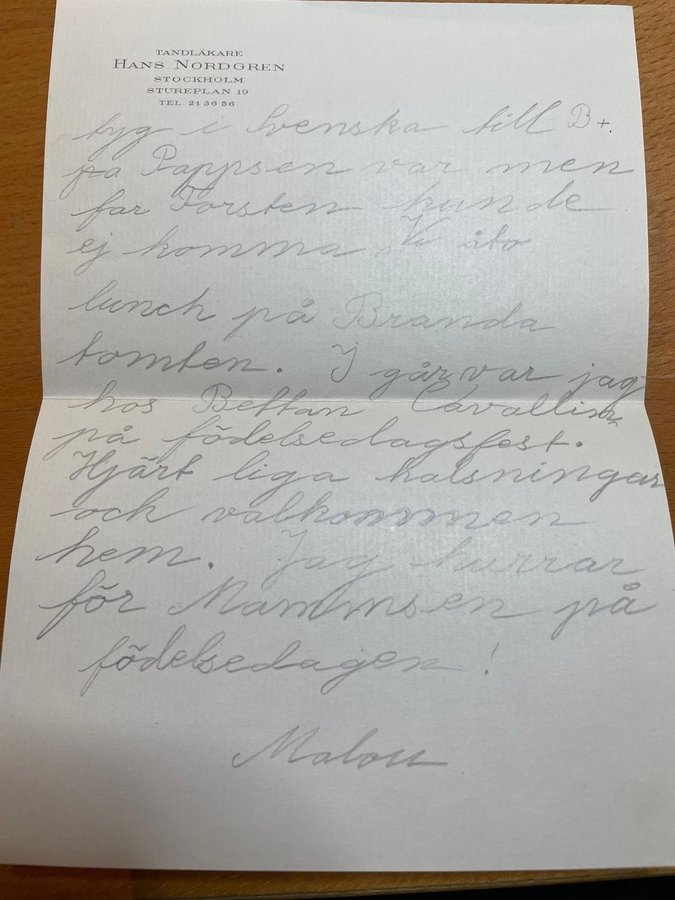 TANDLÄKARE
HANS NORDGREN
STOCKHOLM
STUREPLAN 19
TEL. 21 36 56
tyg i Svenska till B+.
på Pappsen var men
far Torsten kunde
ej komma. Vi åto
lunch på Branda
tomten. I går var jag
hos Bettan Cavallin
på födelsedagsfest.
Hjärt liga halsningar
och valkommen
hem. Jag hurrar
för Mammsen på
födelsedagen!
Malou